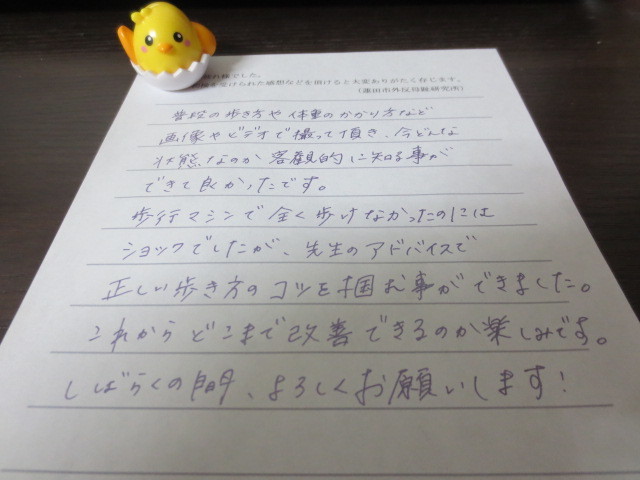 お疲れ様でした。
を受けられた感想などを頂けると大変ありがたく存じます。
(蓮田市外反母趾研究所)
普段の歩き方や体重のかかり方など
画像やビデオで撮って頂き、今どんな
状態なのか客観的に知る事が
できて良かったです。
歩行マシンで全く歩けなかったのには
ショックでしたが、先生のアドバイスで
正しい歩き方のコツを掴む事ができました。
これからどこまで改善できるのか楽しみです。
しばらくの間、よろしくお願いします!